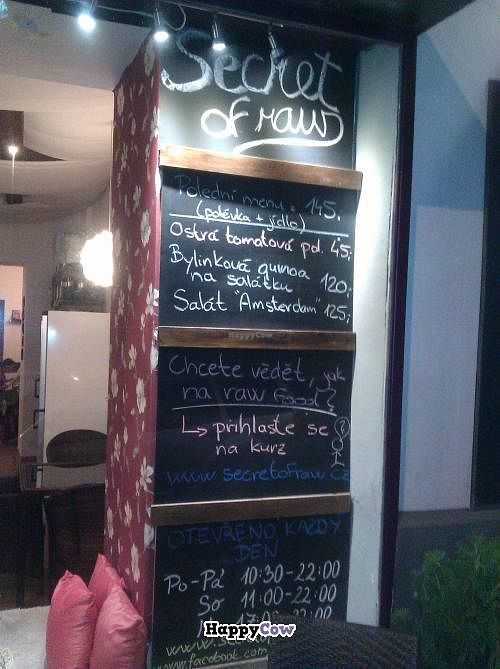 Secret
of raw
Polední menu: 145,-
(polévka + jídlo)
Ostrá tomatová pol. 45,-
Bylinková quinoa
na salátku 120,-
Salát "Amsterdam" 125,-
HappyCow
Chcete vědět, jak
na raw food?
↳ přihlaste se
na kurz
www.secretofraw.cz
OTEVŘENO KAŽDÝ
DEN
Po-Pá 10:30-22:00
So 11:00-22:00
22:00
HappyCow
www.facebook.com